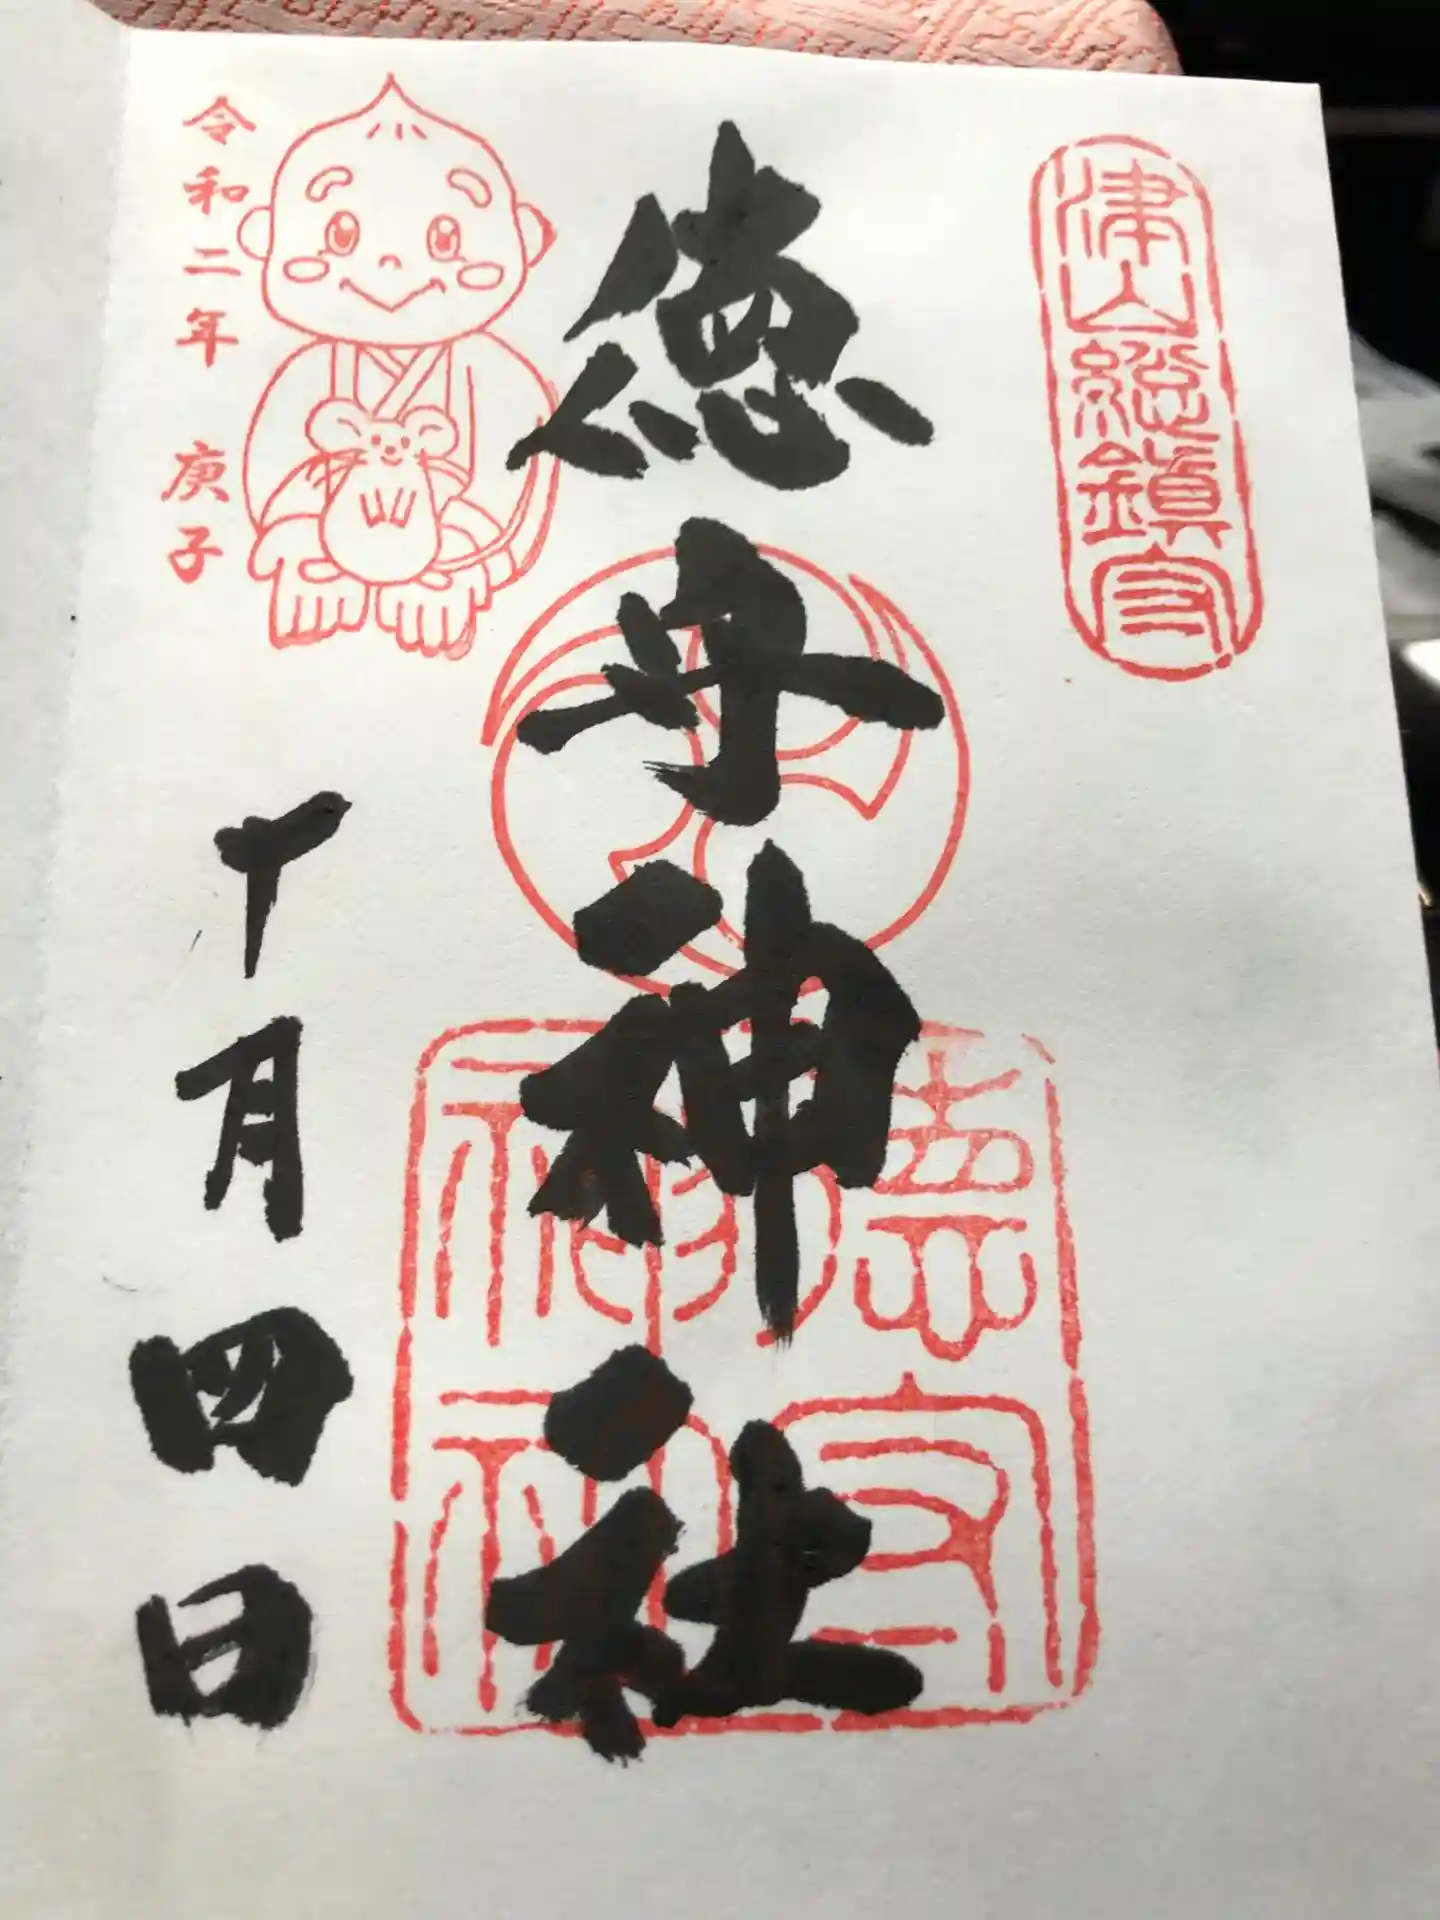 津山総鎮守
徳守神社
徳守
神社
令和二年 庚子
十月四日